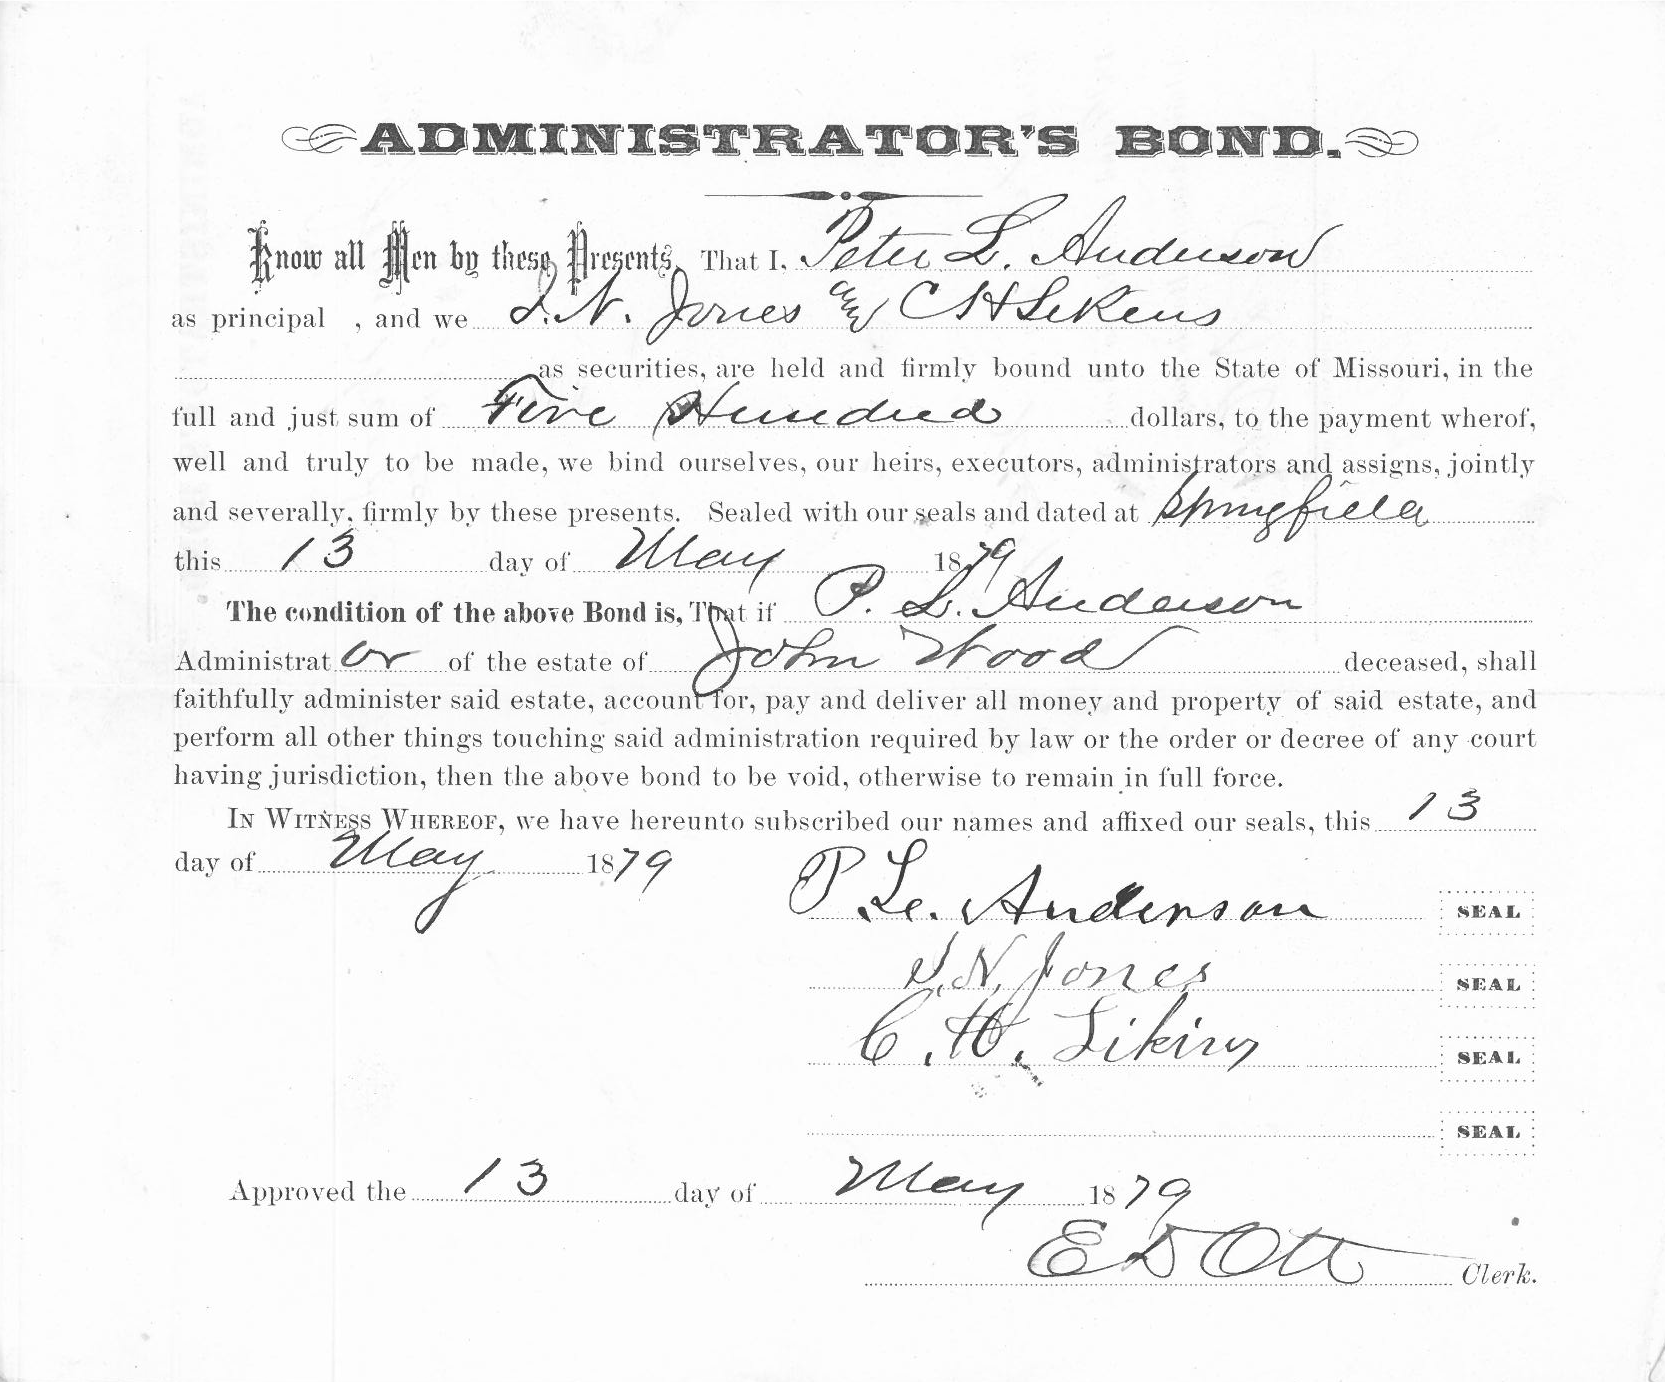 ADMINISTRATOR'S BOND.
Know all Men by these Presents, That I, Peter L. Anderson
as principal , and we J. N. Jones and C H Likens
as securities, are held and firmly bound unto the State of Missouri, in the
full and just sum of Five Hundred dollars, to the payment wherof,
well and truly to be made, we bind ourselves, our heirs, executors, administrators and assigns, jointly
and severally, firmly by these presents. Sealed with our seals and dated at Springfield
this 13 day of May 1879
The condition of the above Bond is, That if P. L. Anderson
Administrator of the estate of John Wood deceased, shall
faithfully administer said estate, account for, pay and deliver all money and property of said estate, and
perform all other things touching said administration required by law or the order or decree of any court
having jurisdiction, then the above bond to be void, otherwise to remain in full force.
IN WITNESS WHEREOF, we have hereunto subscribed our names and affixed our seals, this 13
day of May 1879
P. L. Anderson SEAL
N. Jones SEAL
C. H. SEAL
SEAL
Approved the 13 day of May 1879
E D Ott Clerk.